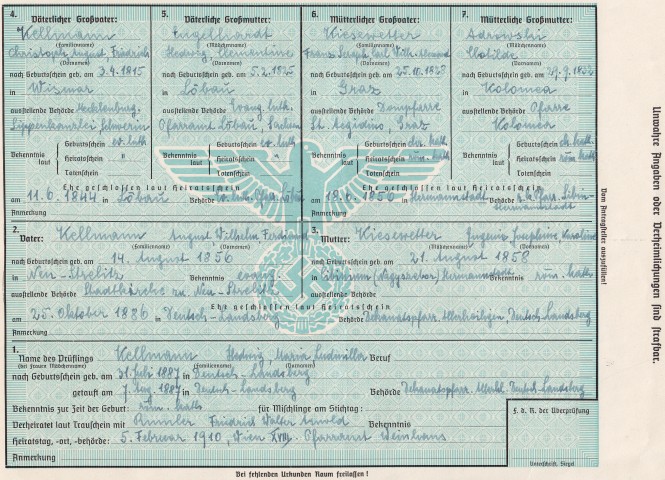 4. Väterlicher Großvater:
Kellmann
(Familienname)
Christoph August, Friedrich
(Vornamen)
nach Geburtsschein geb. am 3.4.1815
in Wismar
ausstellende Behörde Mecklenburg.
Sippenkanzlei Schwerin
Bekenntnis laut
Geburtsschein ev. luth.
Heiratsschein "
Totenschein
5. Väterliche Großmutter:
Engelhardt
(Mädchenname)
Hedwig, Clementine
(Vornamen)
nach Geburtsschein geb. am 5.2.1825
in Löbau
ausstellende Behörde Evang. luth.
Pfarramt Löbau, Sachsen
Bekenntnis laut
Geburtsschein ev. luth
Heiratsschein "
Totenschein
6. Mütterlicher Großvater:
Kiesewetter
(Familienname)
Franz Carl Wilh.
(Vornamen)
nach Geburtsschein geb. am 25.10.1823
in Graz
ausstellende Behörde Dompfarre
St. Aegidius, Graz
Bekenntnis laut
Geburtsschein
Heiratsschein röm. kath
Totenschein
7. Mütterliche Großmutter:
(Mädchenname)
Clotilde
(Vornamen)
nach Geburtsschein geb. am
in Kolomea
ausstellende Behörde Pfarre
Kolomea
Bekenntnis laut
Geburtsschein kath.
Heiratsschein röm. kath.
Totenschein
Ehe geschlossen laut Heiratsschein
am 11.6.1844 in Löbau Behörde ev. luth. Pfar. Löbau
Anmerkung
Ehe geschlossen laut Heiratsschein
am 18.6.1856 in Hermannstadt Behörde Pfarr.
Hermannstadt
Anmerkung
2. Vater: Kellmann August Wilhelm, Ferdinand
(Familienname) (Vornamen)
nach Geburtsschein geb. am 14. August 1856
in Neu-Strelitz Bekenntnis evang.
ausstellende Behörde Stadtkirche zu Neu-Strelitz
3. Mutter: Kiesewetter Eugenie Josephine Karoline
(Mädchenname) (Vornamen)
nach Geburtsschein geb. am 21. August 1858
in Hermannstadt Bekenntnis röm. kath
ausstellende Behörde
Ehe geschlossen laut Heiratsschein
am 25. Oktober 1886 in Deutsch-Landsberg Behörde Dekanatspfarr. Allerheiligen, Deutsch-Landsberg
Anmerkung
1. Name des Prüflings Kellmann Hedwig Maria Ludmilla Beruf
(bei Frauen Mädchenname) (Familienname) (Vornamen)
nach Geburtsschein geb. am 31 Juli 1887 in Deutsch-Landsberg
getauft am 7. Aug. 1887 in Deutsch-Landsberg Behörde Dekanatspfarr. Allerhl. Deutsch-Landsberg
Bekenntnis zur Zeit der Geburt: röm. kath für Mischlinge am Stichtag:
Verheiratet laut Trauschein mit Friedrich Walter Arnold Bekenntnis
Heiratstag, -ort, -behörde: 5. Februar 1910, Wien XVIII. Pfarramt Weinhaus
Anmerkung
F. d. R. der Überprüfung
Unterschrift, Siegel
Bei fehlenden Urkunden Raum freilassen!
Vom Antragsteller auszufüllen!
Unwahre Angaben oder Verheimlichungen sind strafbar.